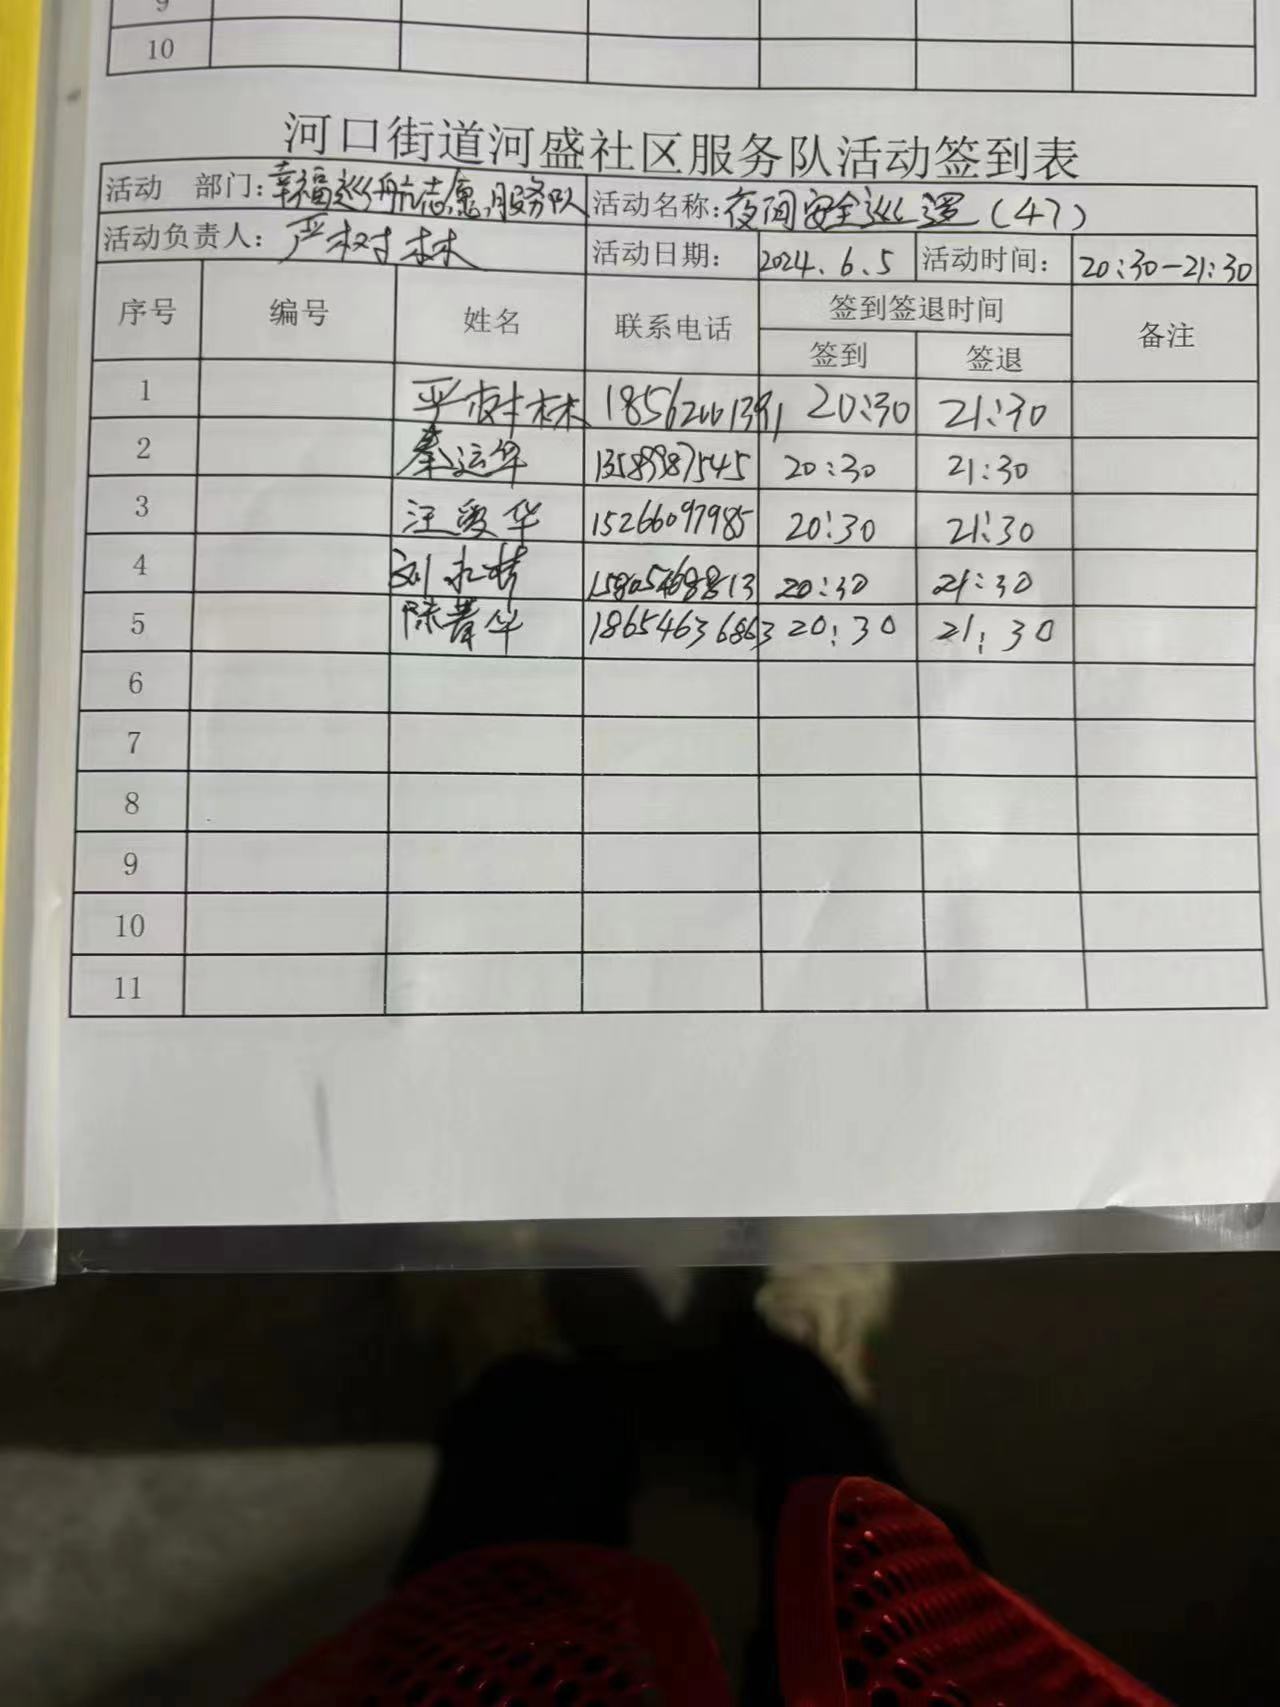 9
10
河口街道河盛社区服务队活动签到表
活动 部门: 幸福巡舟亢志愿服务队 活动名称: 夜间安全巡逻(47)
活动负责人: 严树林 活动日期: 2024.6.5 活动时间: 20:30-21:30
序号 编号 姓名 联系电话 签到签退时间 备注
签到 签退
1 严树林 20:30 21:30
2 秦运华 13589987545 20:30 21:30
3 汪爱华 15266097985 20:30 21:30
4 刘 20:30 21:30
5 陈菁华 18654636863 20:30 21:30
6
7
8
9
10
11